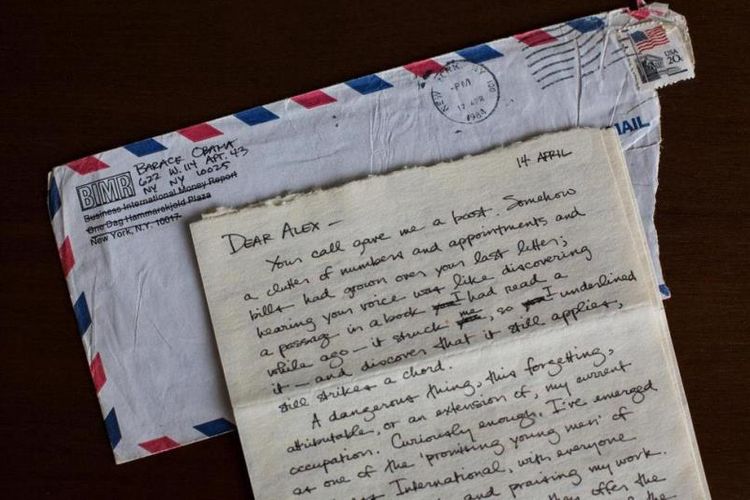 BARACK OBAMA
622 W. 114 APT. 43
NY NY 10025
BIMR
Business International Money Report
One Dag Hammarskjold Plaza
New York, N.Y. 10017
NEW YORK, NY 100
PM
17 APR
1983
USA
20c
MAIL
14 APRIL
DEAR ALEX —
Your call gave me a boost. Somehow
a clutter of numbers and appointments and
bills had grown over your last letter;
hearing your voice was like discovering
a passage in a book I had read a
while ago — it struck me, so I underlined
it — and discover that it still applies,
still strikes a chord.
A dangerous thing, this forgetting,
attributable, or an extension of, my current
occupation. Curiously enough, I've emerged
as one of the 'promising young men' of
International, with everyone
and praising my work.
they offer the